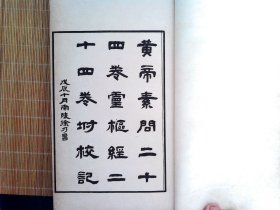 黃帝素問二十
四卷靈樞經二
十四卷坿校記
戊辰十月南陵徐乃昌